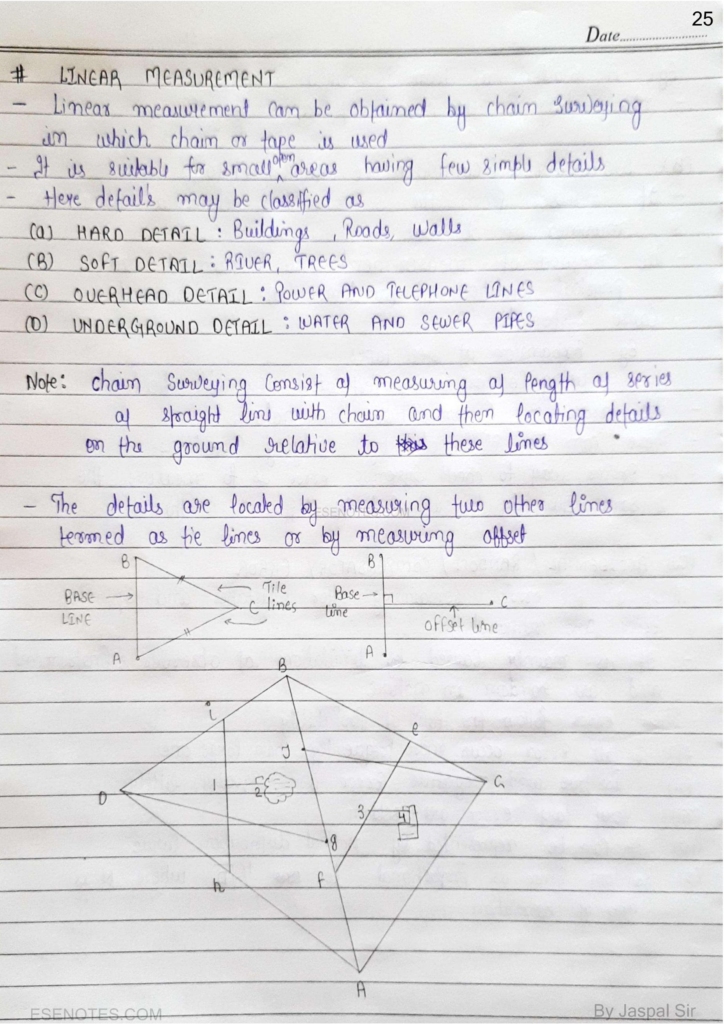 25
Date
# LINEAR MEASUREMENT
- Linear measurement can be obtained by chain surveying
in which chain or tape is used
- It is suitable for small open areas having few simple details
- Here details may be classified as
(a) HARD DETAIL : Buildings , Roads, Walls
(B) SOFT DETAIL : RIVER, TREES
(C) OVERHEAD DETAIL : POWER AND TELEPHONE LINES
(D) UNDERGROUND DETAIL : WATER AND SEWER PIPES
Note: chain Surveying Consist of measuring of length of series
of straight line with chain and then locating details
on the ground relative to these lines
- The details are located by measuring two other lines
termed as tie lines or by measuring offset
B
BASE LINE
Tile lines
C
A
B
Base line
C
offset line
A
B
i
e
J
D
1
2
C
3
4
g
h
f
A
ESENOTES.COM
By Jaspal Sir